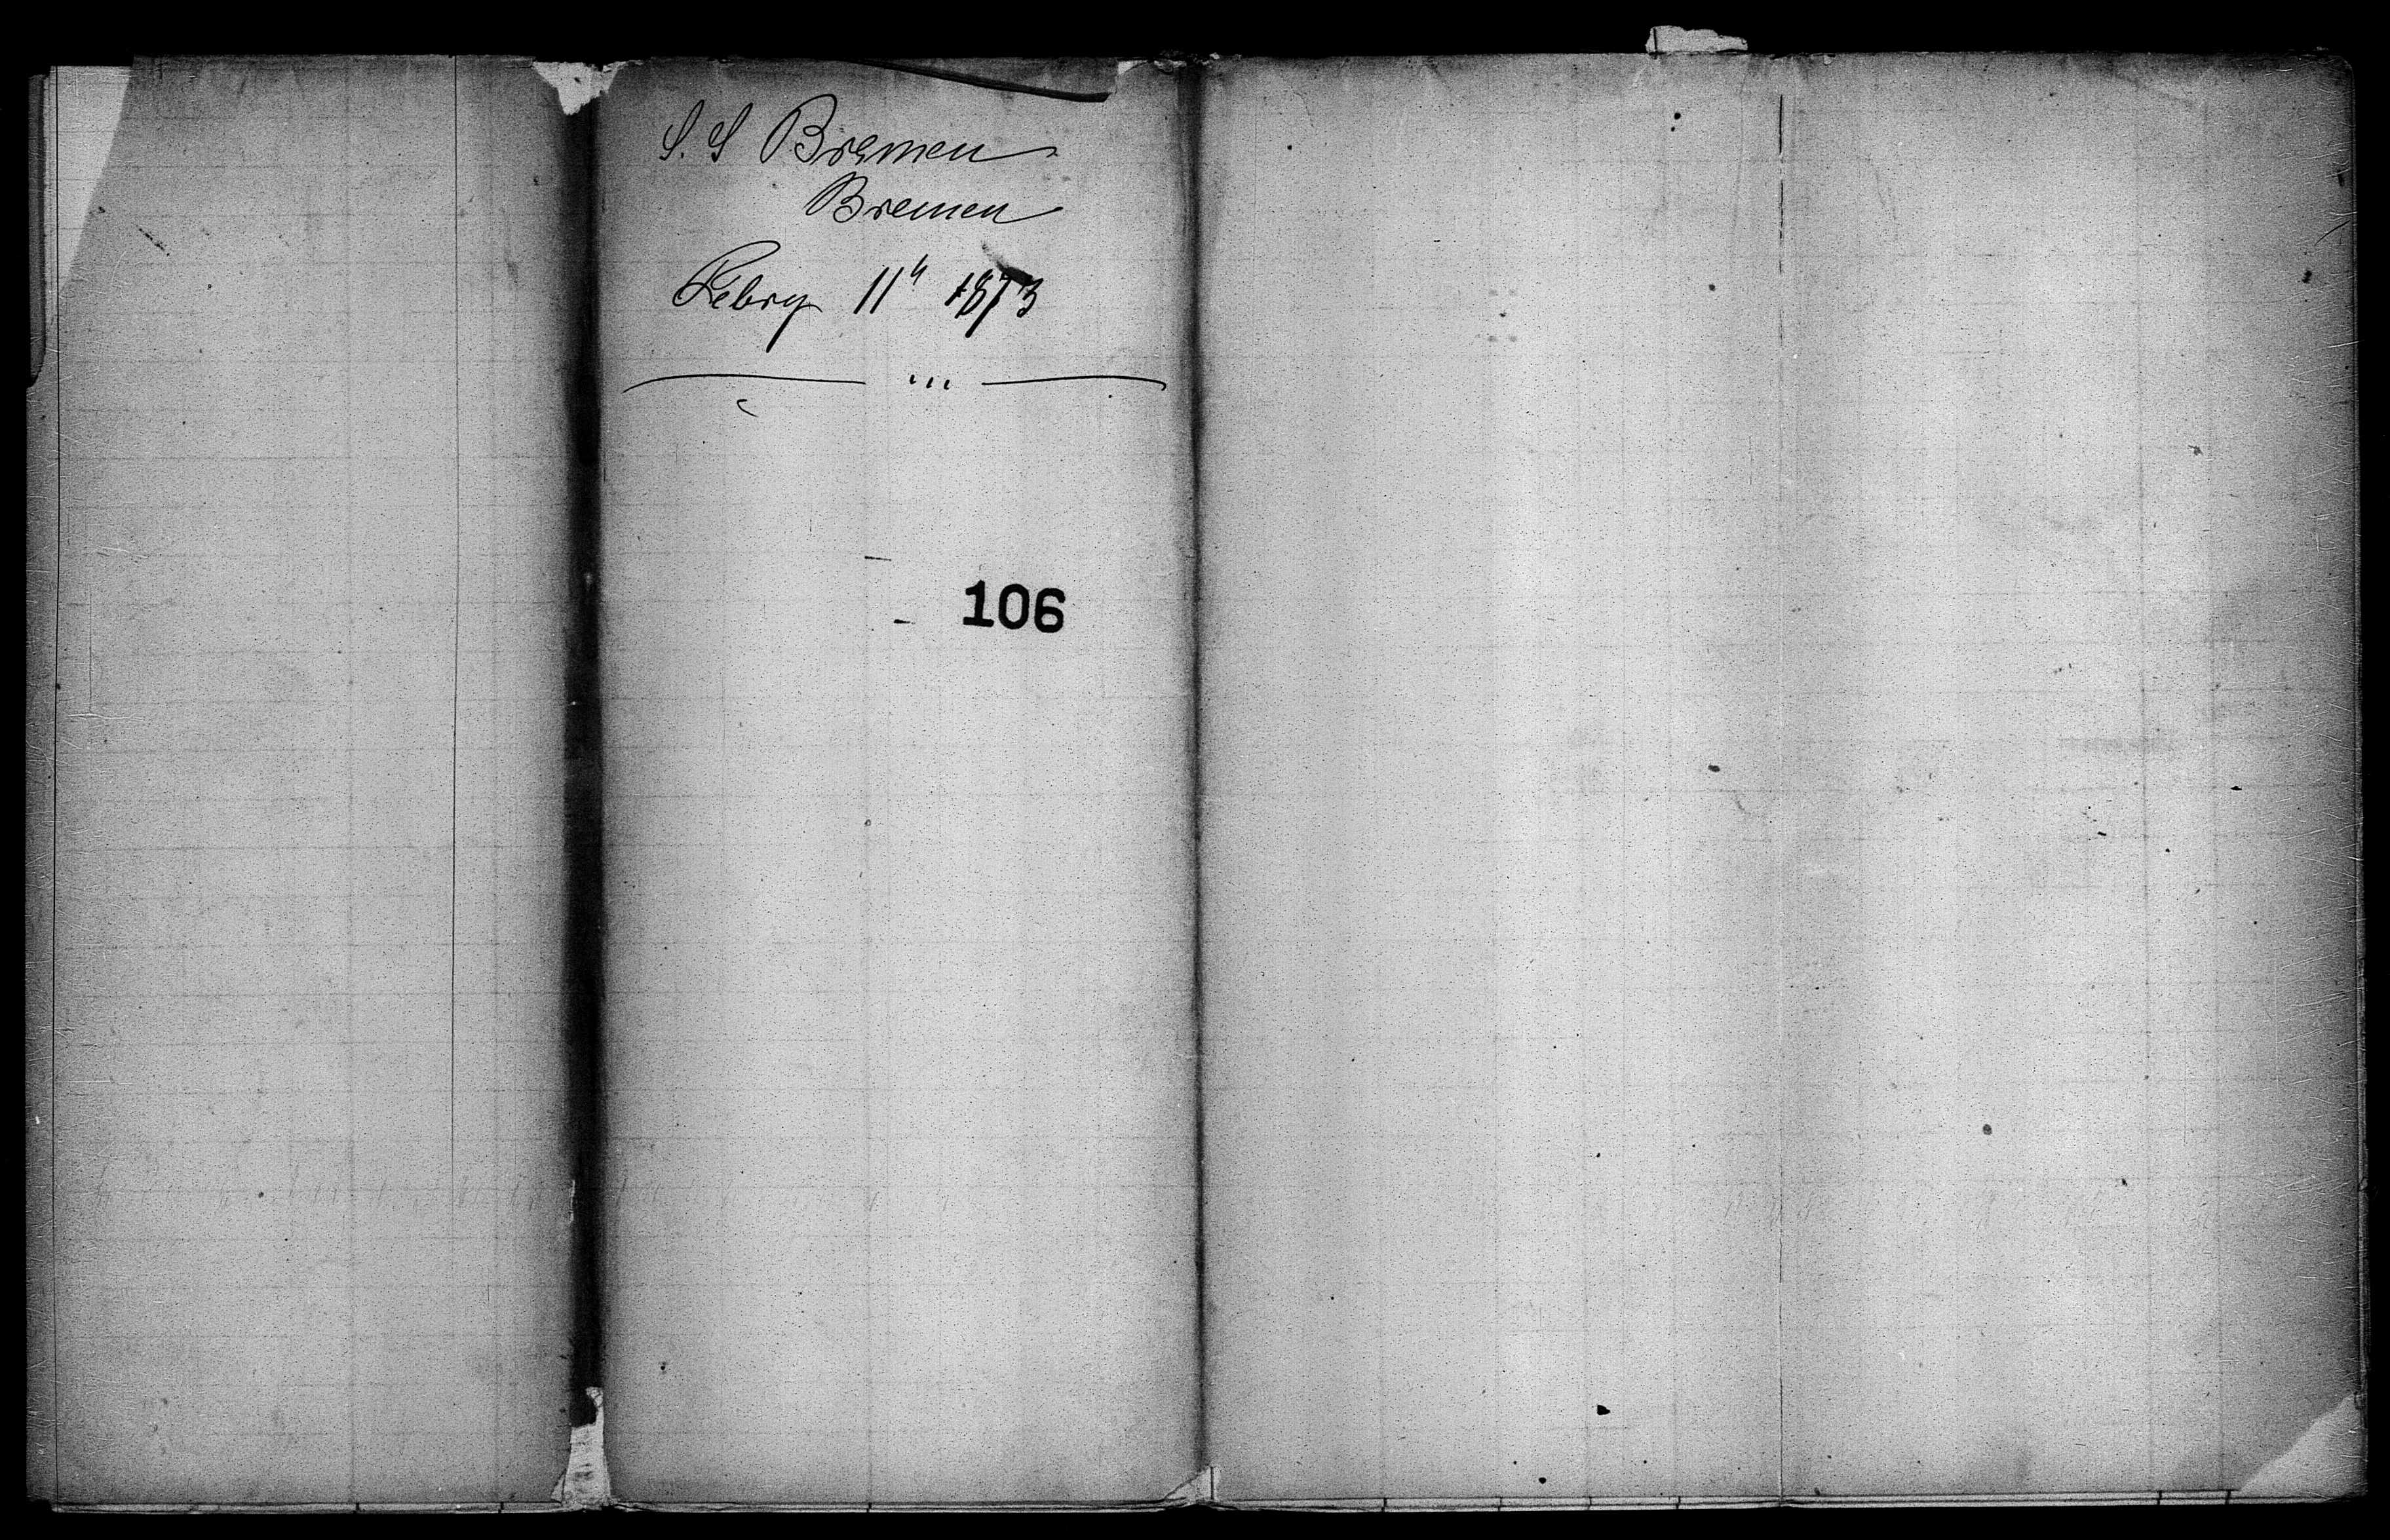 S. S Bremen
Bremen
Febry 11th 1873
106